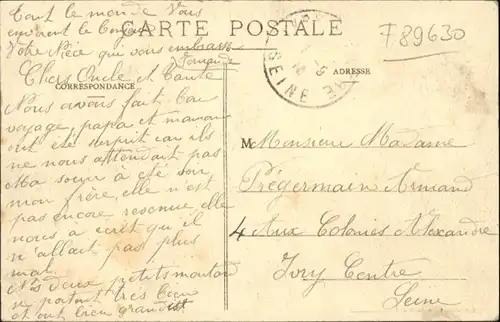 Tout le monde vous
envoient le bonjour
Votre Nièce qui vous embrasse
CARTE POSTALE
F89630
SEINE
CORRESPONDANCE
ADRESSE
Chers Oncle et Tante
Nous avons fait bon
voyage, papa et maman
ont été surprit car ils
ne nous attendait pas
Ma soeur à été voir
mon frère, elle n'est
pas encore revenue elle
nous a écrit qu'il
n'allait pas plus
mal.
Nos deux petits moutard
se portent très bien
et ont bien grandit
M Monsieur Madame
Prégermain Armand
4 Aux Colonies Alexandre
Ivry Centre
Seine